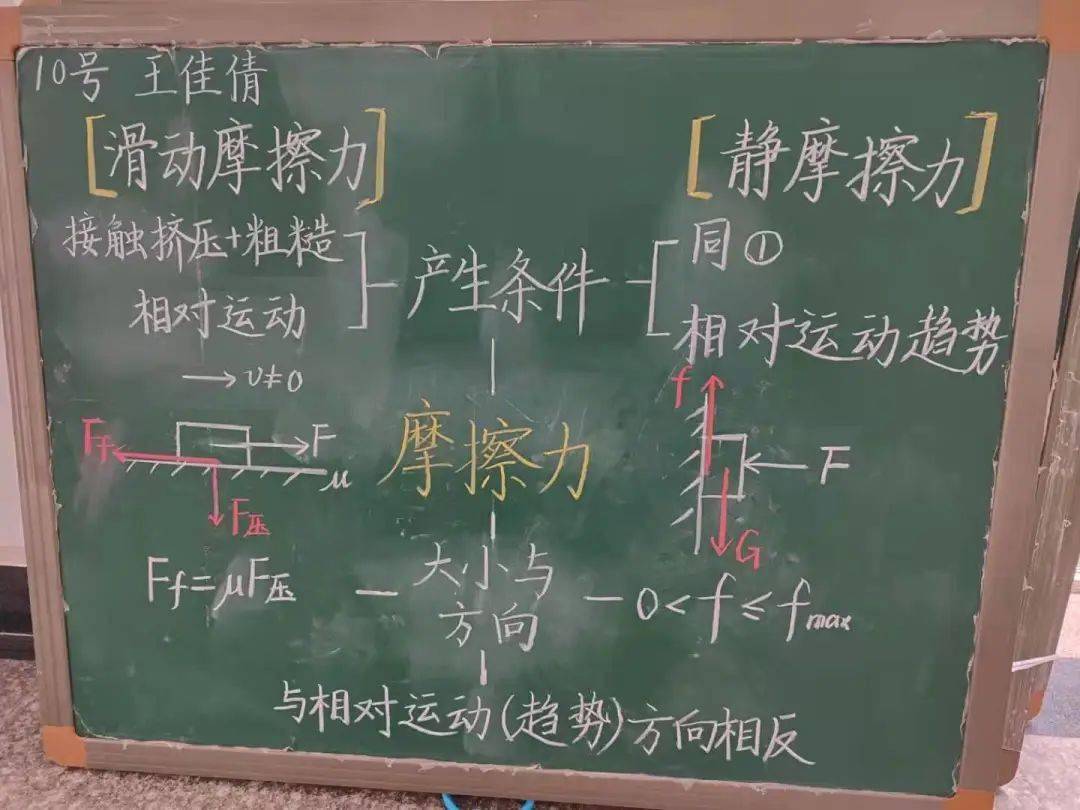 10号 王佳倩
[滑动摩擦力]
[静摩擦力]
接触挤压+粗糙
相对运动
产生条件
同①
相对运动趋势
→ v≠0
Ff
F
μ
F压
摩擦力
f
F
G
Ff=μF压
大小与
方向
0<f≤fmax
与相对运动(趋势)方向相反